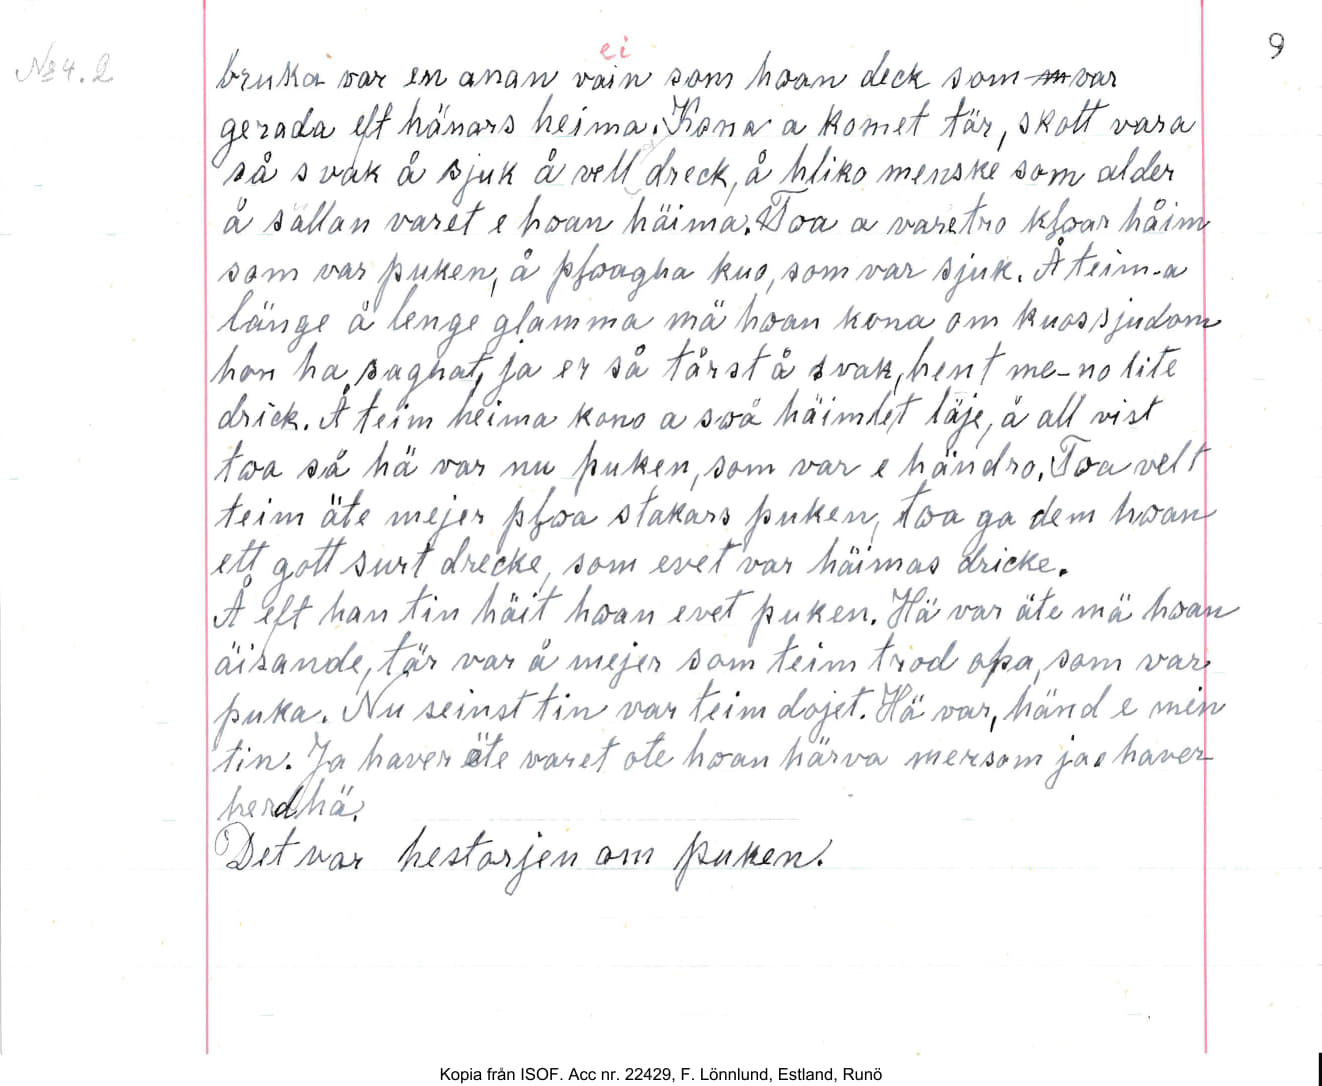 № 4. 2
9
ei
bruka var en anan vain som hoan deck som var
gerada eft hänars heima. Kona a komet tär, skott vara
så svak å sjuk å vell dreck, å hliko menske som alder
å sällan varet e hoan häima. Toa a varetro kfoar håim
som var puken, å pfoagha kuo, som var sjuk. Å teim a
länge å lenge glamma mä hoan kona om kuos sjudom
hon ha saghat, ja er så tårst å svak, hent me no lite
drick. Å teim heima kono a soå häimlet läje, å all vist
toa så hä var nu puken, som var e händro. Toa velt
teim äte mejer pfoa stakars puken, toa ga dem hoan
ett gott surt drecke, som evet var häimas dricke.
Å eft han tin häit hoan evet puken. Hä var äte mä hoan
äisande, tär var å mejer som teim trod opa, som var
puka. Nu seinst tin var teim dojet. Hä var, händ e min
tin. Ja haver äte varet ote hoan härva mersom jae haver
herd hä.
Det var hestorjen om puken.
Kopia från ISOF. Acc nr. 22429, F. Lönnlund, Estland, Runö